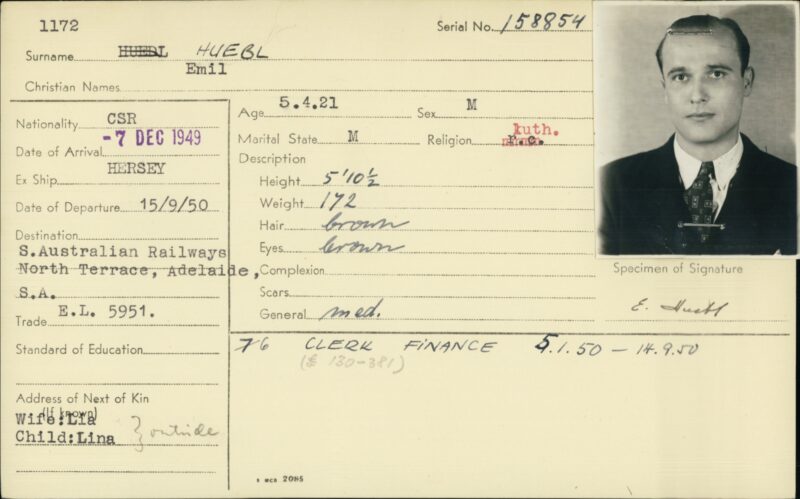 1172
Serial No. 158854
Surname HUEDL HUEBL
Emil
Christian Names
Nationality CSR
Date of Arrival -7 DEC 1949
Ex Ship HERSEY
Date of Departure 15/9/50
Destination
S.Australian Railways
North Terrace, Adelaide,
S.A.
Trade E.L. 5951.
Standard of Education
Address of Next of Kin
(If known)
Wife:Lia
Child:Lina } outside
Age 5.4.21 Sex M
Marital State M Religion R.C. Luth.
Description
Height 5'10½
Weight 172
Hair brown
Eyes brown
Complexion
Scars
General med.
Specimen of Signature
E. Huebl
76 CLERK FINANCE 5.1.50 — 14.9.50
(£ 130-381)
2085